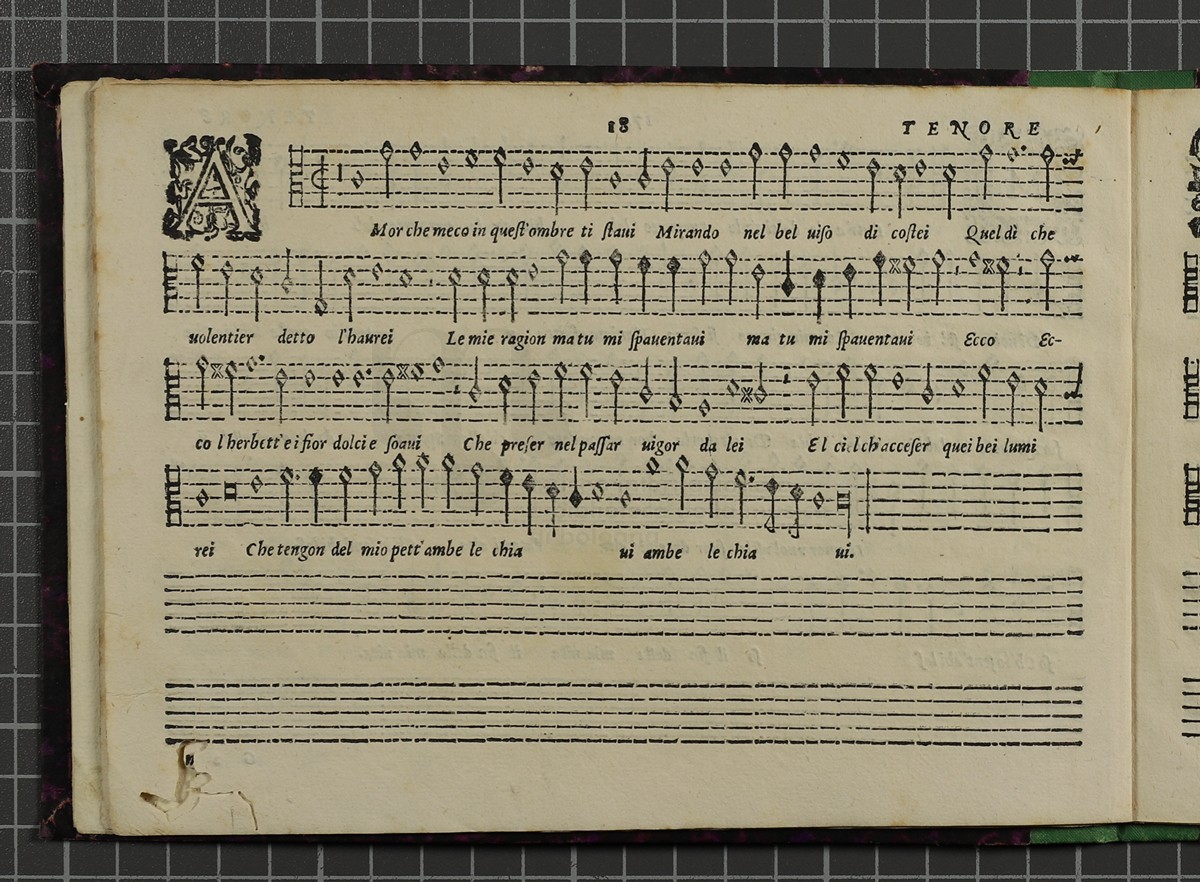 18 TENORE
AMor che meco in quest'ombre ti staui Mirando nel bel uiso di costei Quel dì che
uolentier detto l'haurei Le mie ragion ma tu mi spauentaui ma tu mi spauentaui Ecco Ec-
co l'herbett'e i fior dolci e soaui Che preser nel passar uigor da lei El ciel ch'acceser quei bei lumi
rei Che tengon del mio pett'ambe le chia ui ambe le chia ui.